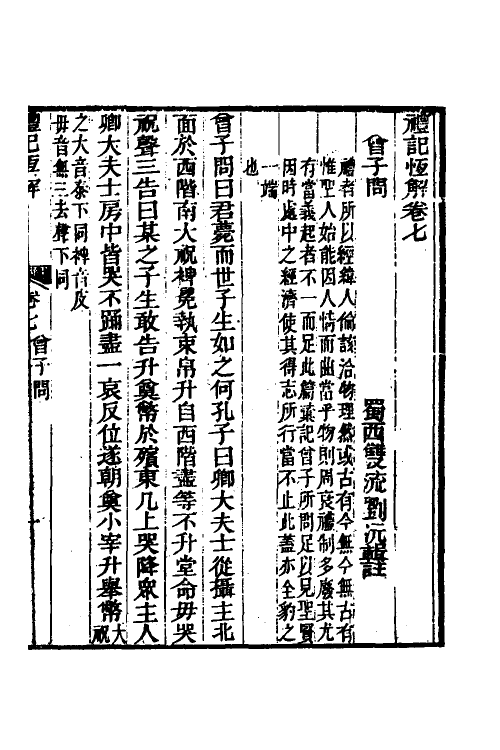 禮記恆解卷七
蜀西雙流劉沅輯註
曾子問
禮者所以經緯人倫該洽物理然或古有今無今無古有
惟聖人始能因人情而曲當乎物則周衰禮制多廢其尤
有當義起者不一而足此篇彚記曾子所問足以見聖賢
因時處中之經濟使其得志所行當不止此蓋亦全豹之
一端
也
曾子問曰君薨而世子生如之何孔子曰卿大夫士從攝主北
面於西階南大祝裨冕執束帛升自西階盡等不升堂命毋哭
祝聲三告曰某之子生敢告升奠幣於殯東几上哭降眾主人
卿大夫士房中皆哭不踊盡一哀反位遂朝奠小宰升舉幣大祝
之大音泰下同裨音皮
毋音無三去聲下同
禮記恆解
卷七 曾子問
一